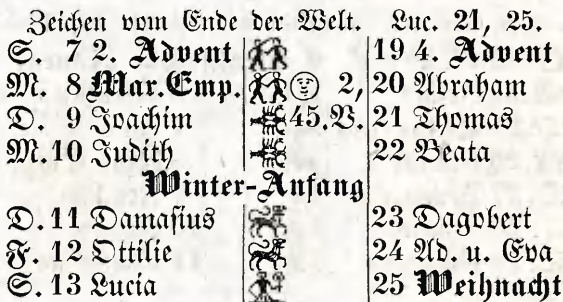 Zeichen vom Ende der Welt. Luc. 21, 25.
S. 7 2. Advent 19 4. Advent
M. 8 Mar. Emp. 2, 20 Abraham
D. 9 Joachim 45. V. 21 Thomas
M. 10 Judith 22 Beata
Winter-Anfang
D. 11 Damasius 23 Dagobert
F. 12 Ottilie 24 Ad. u. Eva
S. 13 Lucia 25 Weihnacht